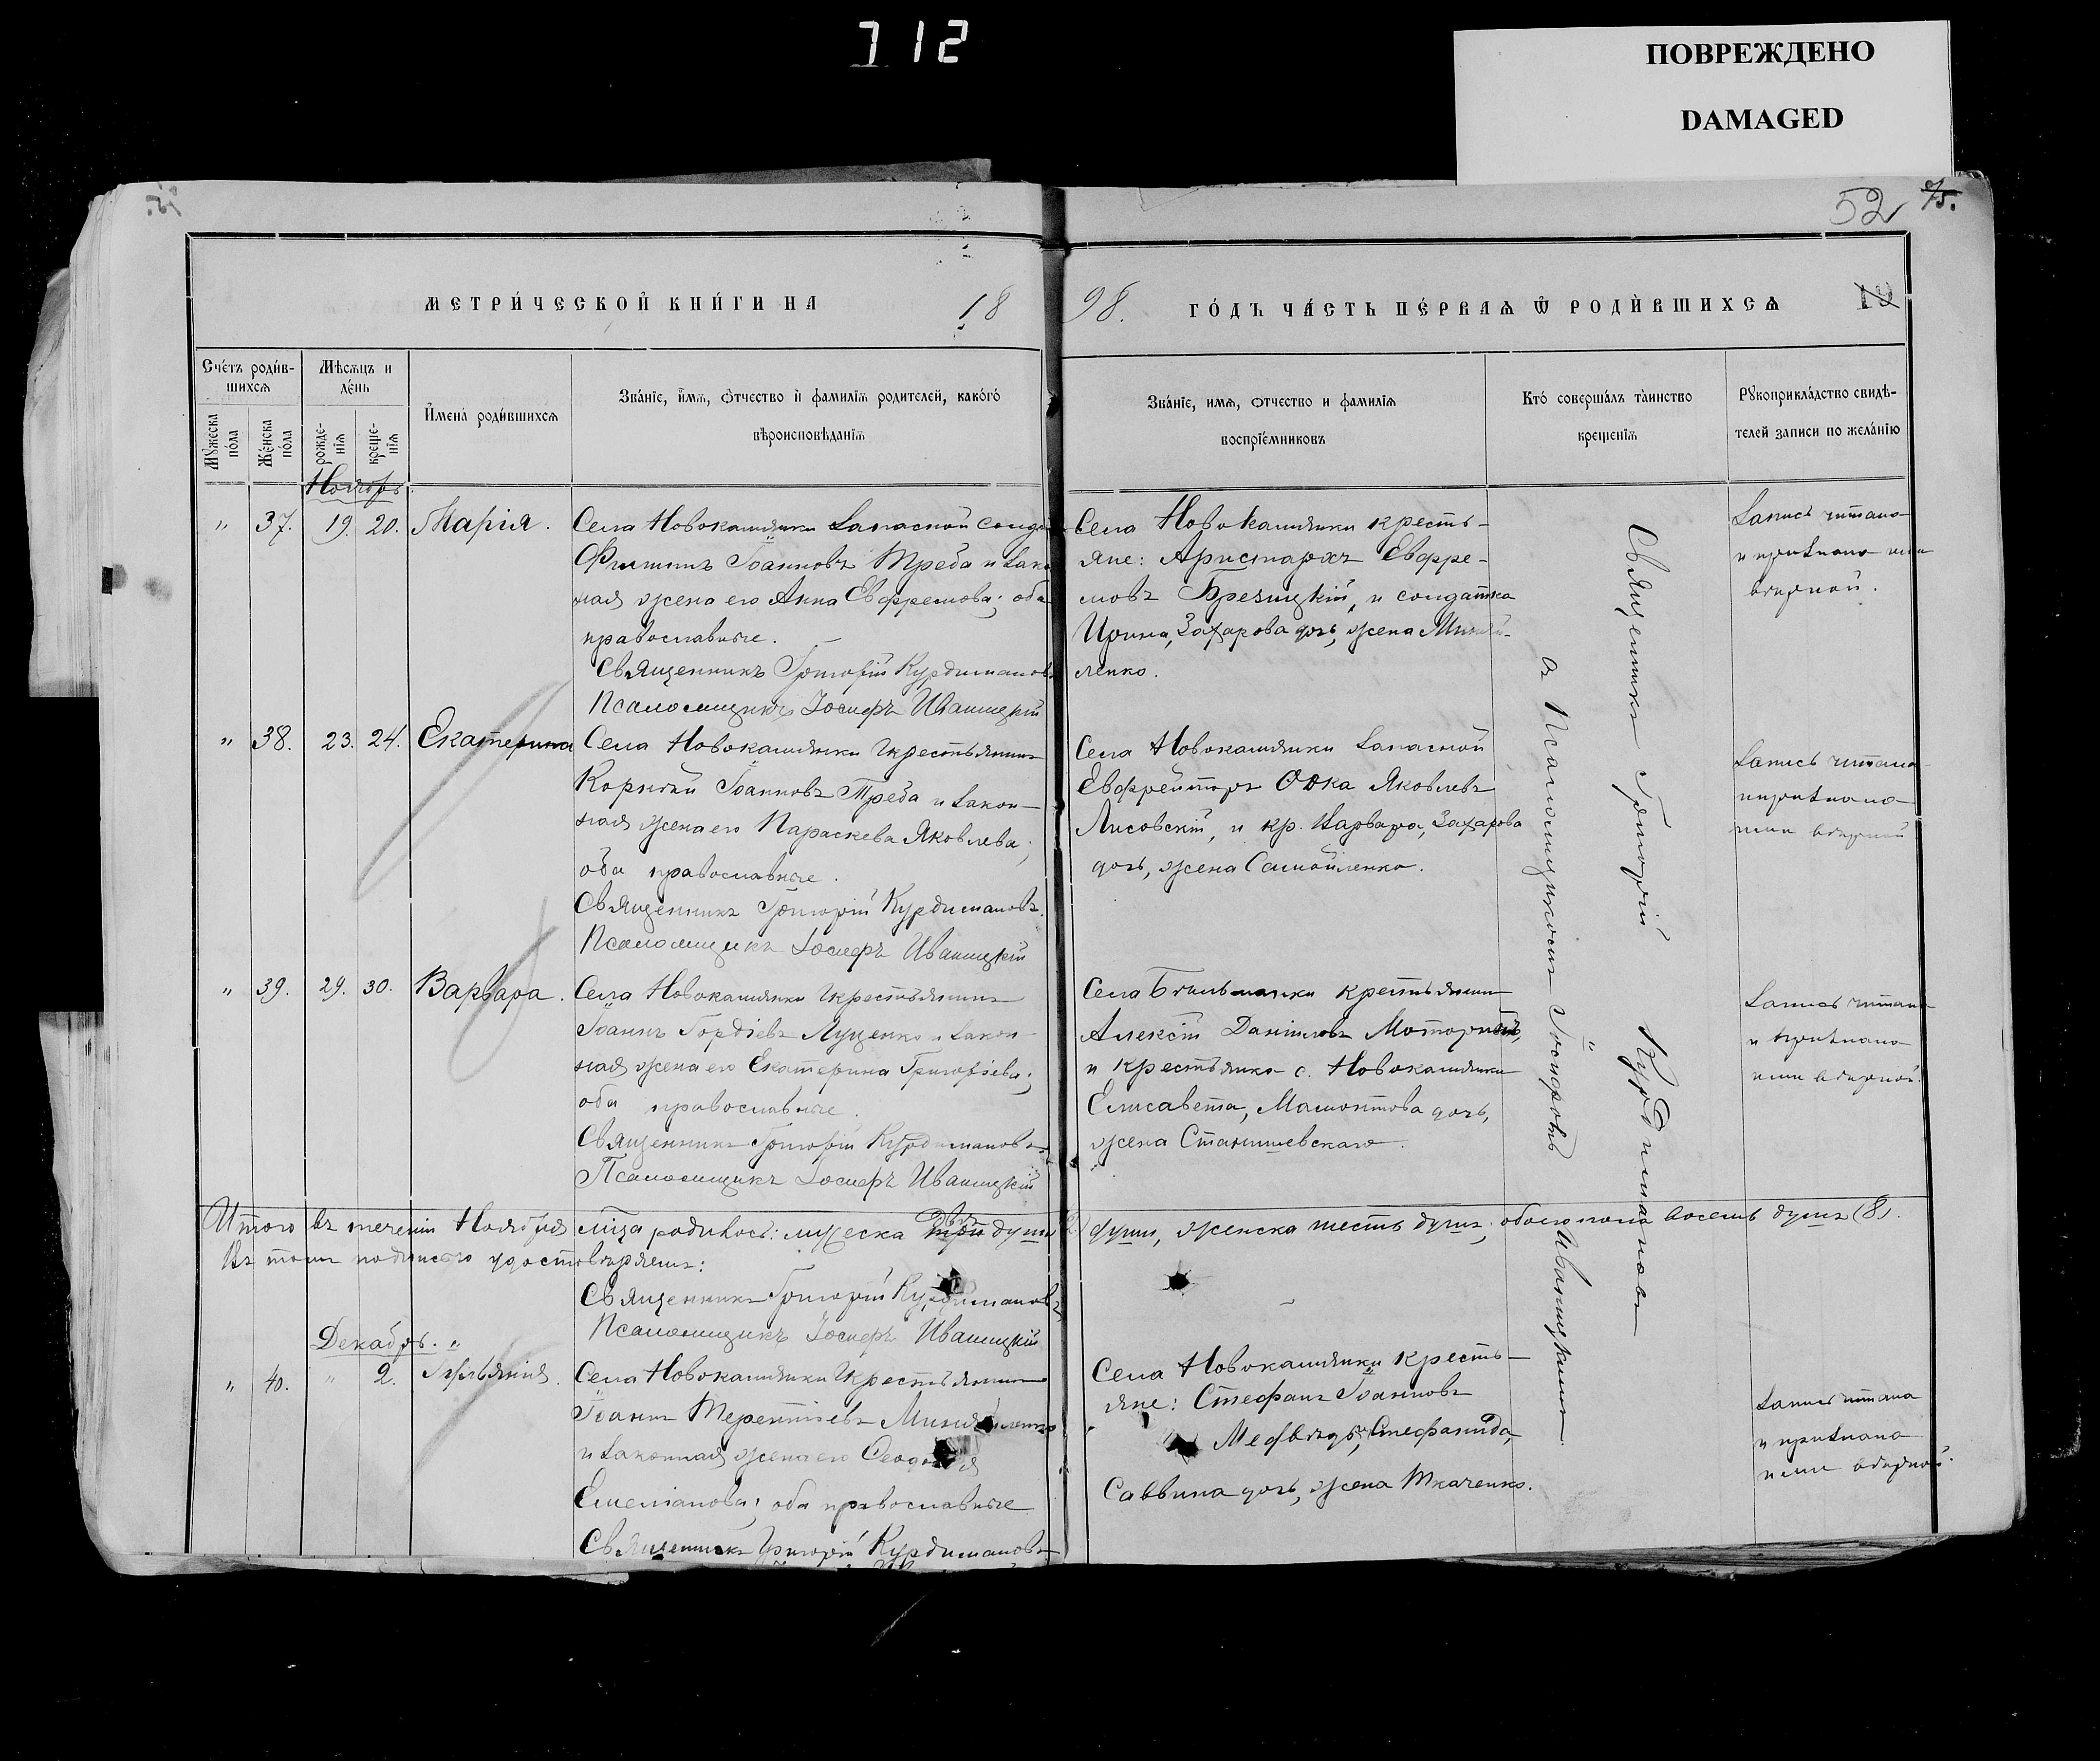 712
ПОВРЕЖДЕНО
DAMAGED
52 75.
МЕТРИ́ЧЕСКОЙ КНИ́ГИ НА 18
98. ГО́ДЪ ЧА́СТЬ ПЕ́РВАѦ Ѿ РОДИ́ВШИХСѦ 19
Сче́тъ роди́в-
шихсѧ
Мꙋжеска по́ла
Же́нска по́ла
Мѣ́сѧцъ и
де́нь
рожде-
нїѧ
креще-
нїѧ
И҆мена̀ роди́вшихсѧ
Зва́нїе, и҆́мѧ, ѻ҆́тчество и҆ фамилїѧ родителей, како́гѡ
вѣроисповѣ́данїѧ
Зва́нїе, имѧ, ѻтчество и фамилїѧ
воспрїе́мниковъ
Кто́ соверша́лъ та̀инство
креще́нїѧ
Рꙋкоприкла́дство свидѣ́-
телей записи по жела́нїю
Ноябрь.
" 37. 19. 20. Марія.
Села Новокашлянки запасной
Филиппъ Іоанновъ Треба и
ная жена его Анна Евфремова; оба
православные.
Священникъ Григорій Курдимановъ
Псаломщикъ Іосифъ Иваницкій
Села Новокашлянки кресть-
яне: Аристархъ Евфре-
мовъ Брезицкій, и солдатка
Ирина, Захарова дочь, жена
ленко.
Запись читана
и признана нами
вѣрной.
" 38. 23. 24. Екатерина
Села Новокашлянки крестьянинъ
Корнѣй Іоанновъ Треба и закон-
ная жена его Параскева Яковлева;
оба православные.
Священникъ Григорій Курдимановъ.
Псаломщикъ Іосифъ Иваницкій
Села Новокашлянки запасной
Евфрейторъ Ѳока Яковлевъ
Лисовскій, и кр. Варвара, Захарова
дочь, жена Самойленко.
Запись читана
и признана
нами вѣрной
" 39. 29. 30. Варвара.
Села Новокашлянки крестьянинъ
Іоаннъ Гордіевъ Луценко и закон-
ная жена его Екатерина Григоріева;
оба православные.
Священникъ Григорій Курдимановъ
Псаломщикъ Іосифъ Иваницкій
Села крестьянинъ
Алексій Даніиловъ Моторный,
и крестьянка с. Новокашлянки
Елисавета, Мамонтова дочь,
жена Станишевскаго.
Запись читана
и признана
нами вѣрной.
Священникъ Григорій Курдимановъ
съ Псаломщикомъ Іосифомъ Иваницкимъ.
Итого въ теченіи Ноября м-ца родилось: мужеска двѣ три души
души, женска шесть душъ; обоего пола восемь душъ (8).
Въ томъ подписью удостовѣряемъ:
Священникъ Григорій Курдимановъ
Псаломщикъ Іосифъ Иваницкій
Декабрь. "
" 40. " 2.
Села Новокашлянки крестьянинъ
Іоаннъ Терентіевъ
и законная жена его
Емеліанова; оба православные
Священникъ Григорій Курдимановъ
Села Новокашлянки кресть-
яне: Стефанъ Іоанновъ
Медвѣдь, Стефанида,
Саввина дочь, жена Ткаченко.
Запись читана
и признана
нами вѣрной.